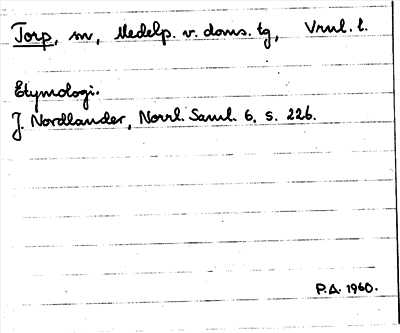 Torp, m, Medelp. v. doms. tg, Vrnl. t.
Etymologi.
J. Nordlander, Norrl. Saml. 6, s. 226.
P.A. 1960.